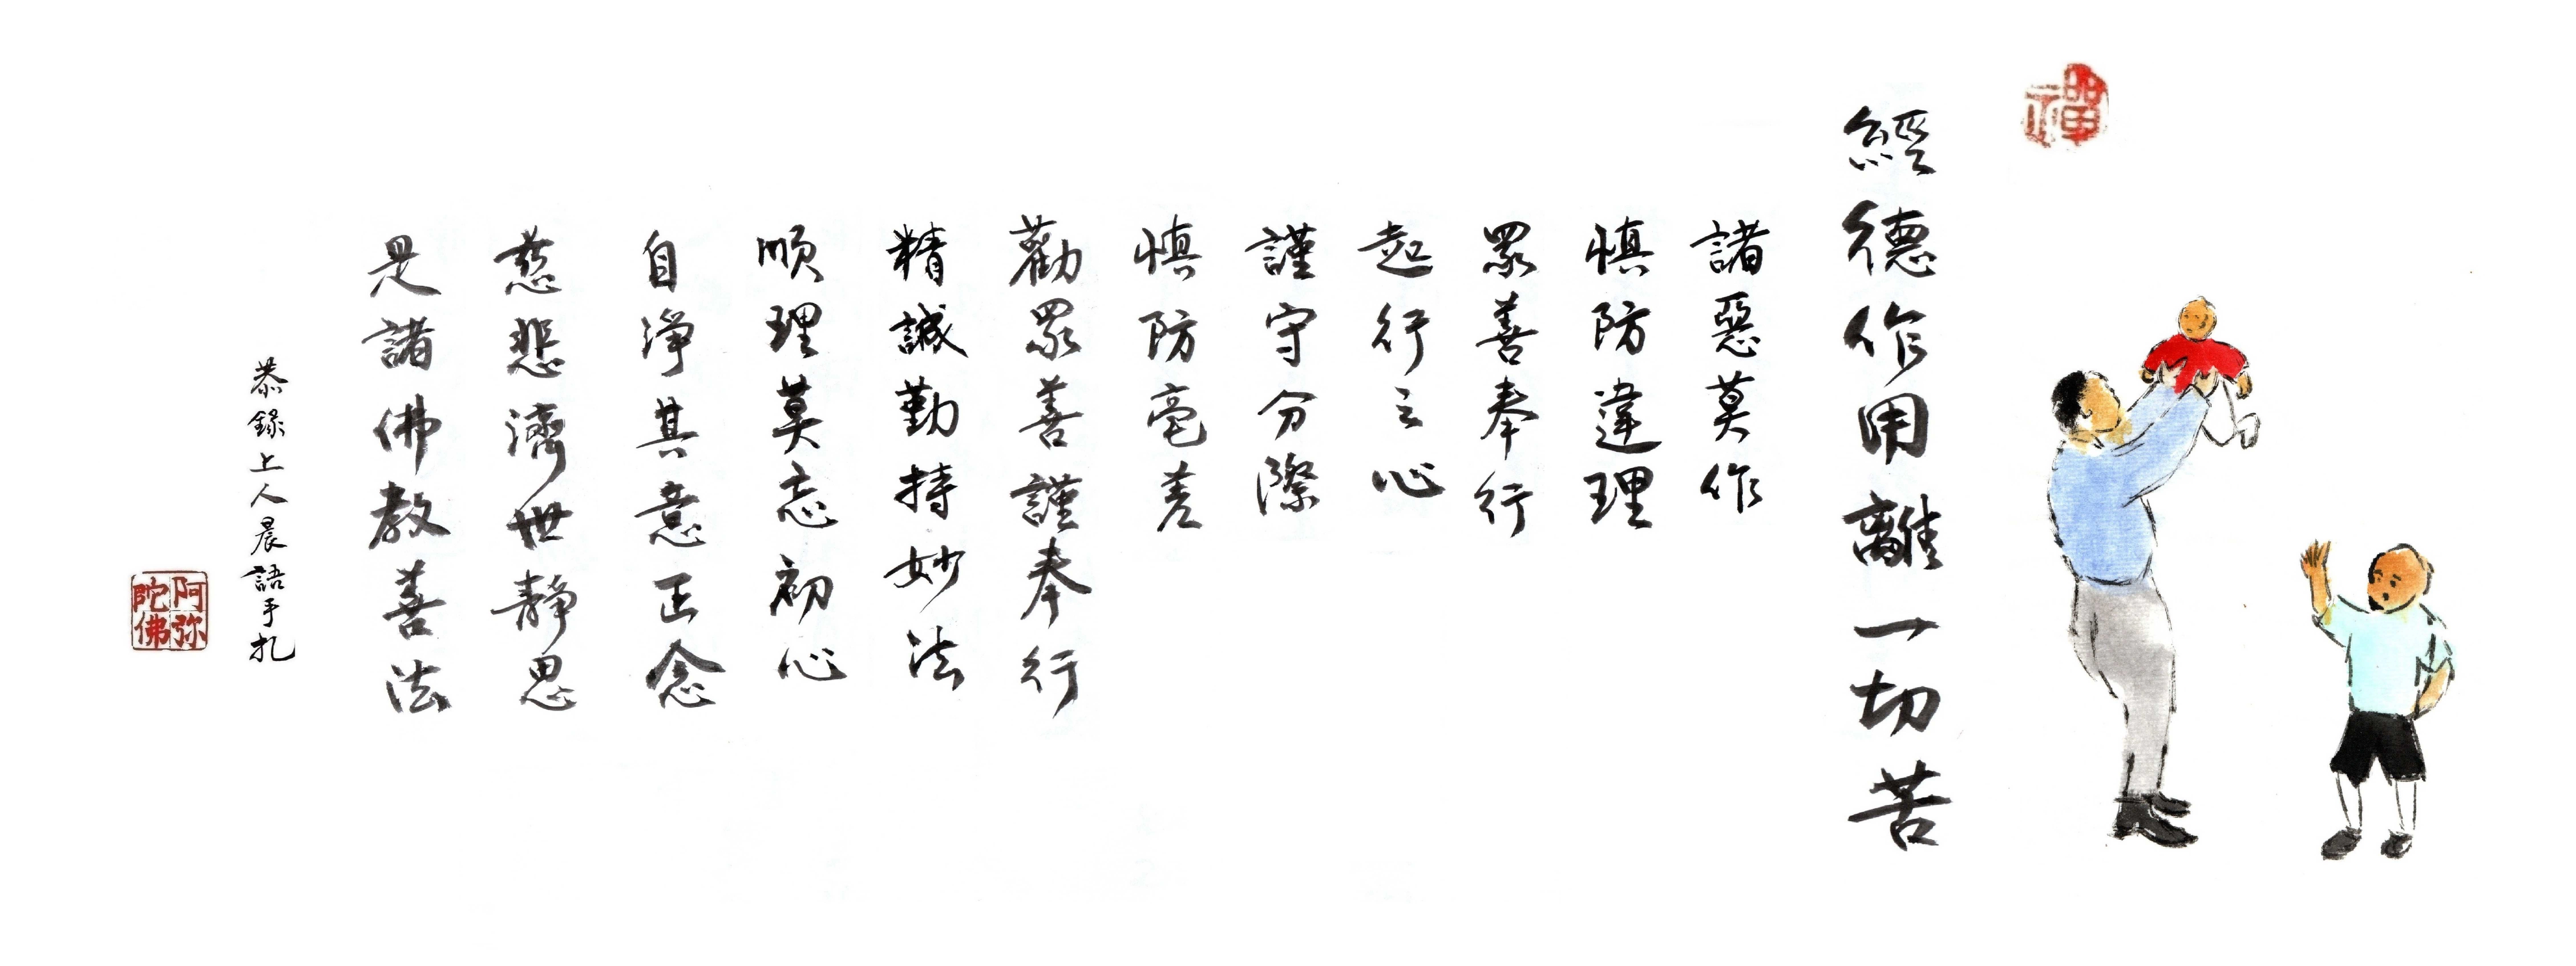 禪
經德作用離一切苦
諸惡莫作
慎防違理
眾善奉行
起行之心
謹守分際
慎防毫差
勸眾善謹奉行
精誠勤持妙法
順理莫忘初心
自淨其意正念
慈悲濟世靜思
是諸佛教善法
恭錄上人晨語手札
阿弥陀佛